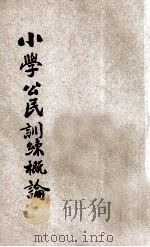 小學公民訓練概論
mtoou.info